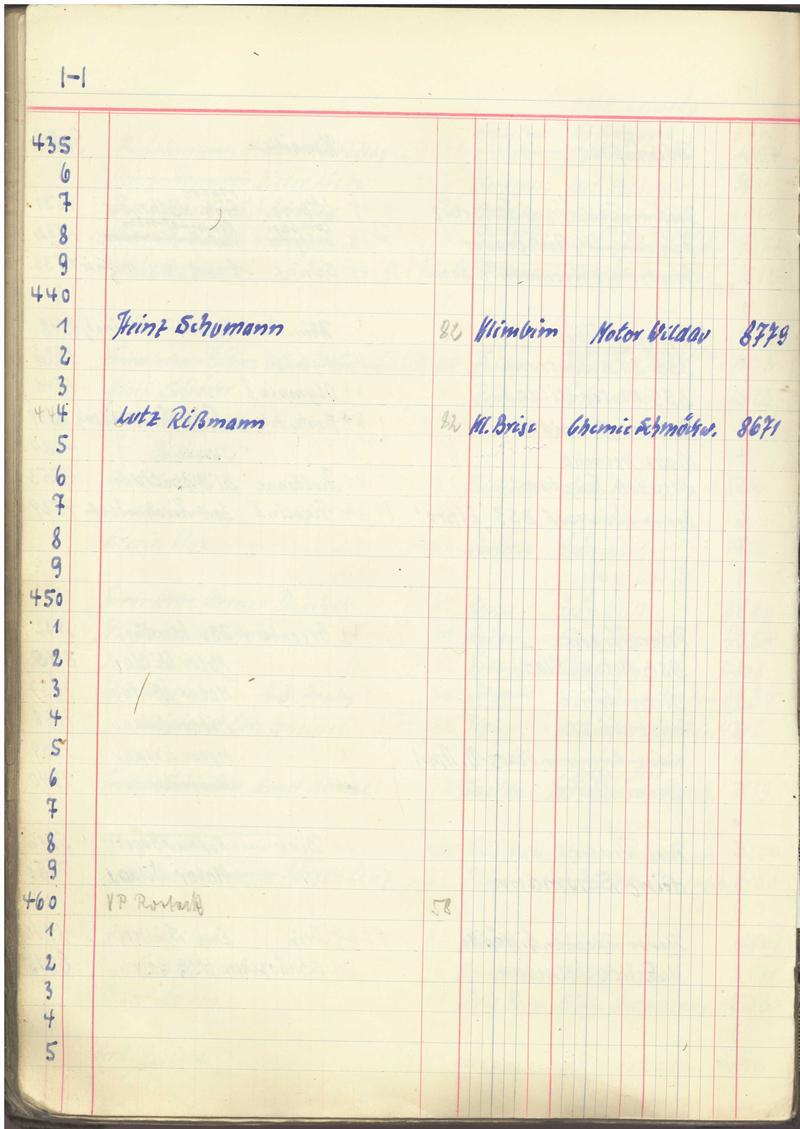 H
435
6
7
8
9
440
1 Heinz Schumann 82 Klimbim Motor Wildau 8779
2
3
4 Lutz Rißmann 82 Kl. Brise Chemie Schmöckw. 8671
5
6
7
8
9
450
1
2
3
4
5
6
7
8
9
460 VP Rostock 58
1
2
3
4
5